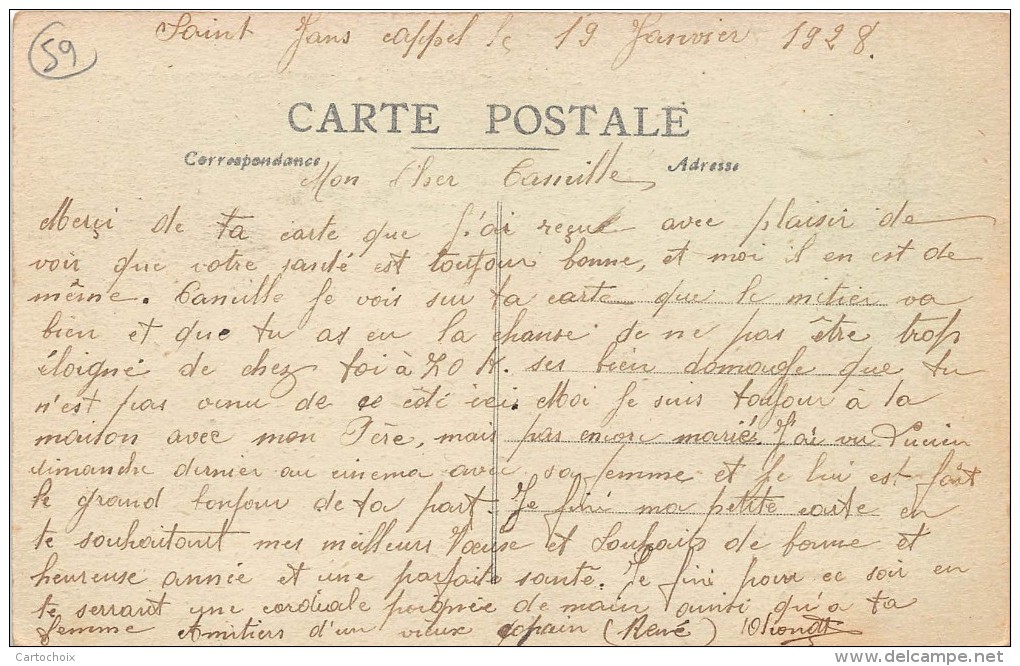 59
Saint Jans cappel le 19 Janvier 1928.
CARTE POSTALE
Correspondance
Adresse
Mon Cher Camille
Merçi de ta carte que j'ai reçue avec plaisir de
voir que votre santé est toujour bonne, et moi il en est de
même. Camille Je vois sur ta carte que le métier va
bien et que tu as eu la chanse de ne pas être trop
éloigné de chez toi à 20 K. ses bien domage que tu
n'est pas venu de ce côté ici. Moi Je suis toujour à la
maison avec mon Père, mais pas encore marié. J'ai vu Lucien
dimanche dernier au cinema avec sa femme et je lui est fait
le grand bonjour de ta part. Je fini ma petite carte en
te souhaitant mes meilleurs Vœuse et Souhaits de bonne et
heureuse année et une parfaite santé. Je fini pour ce soir en
te serrant une cordiale poignée de main ainsi qu'a ta
femme Amitiers d'un vieux copain (René)
Cartochoix
delcampe.net